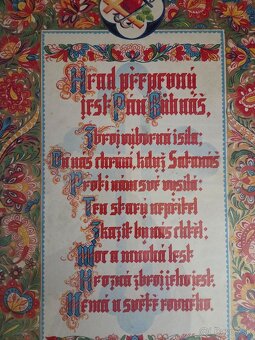 Hrad přepevný
jest Pán Bůh náš,
Zbroj výborná i síla:
On nás chrání, když Satanáš
Proti nám své vysílá:
Ten starý nepřítel
Zkazit by nás chtěl:
Moc a mnohá lest
Hrozná zbroj jeho jest
Nemá v světě rovného